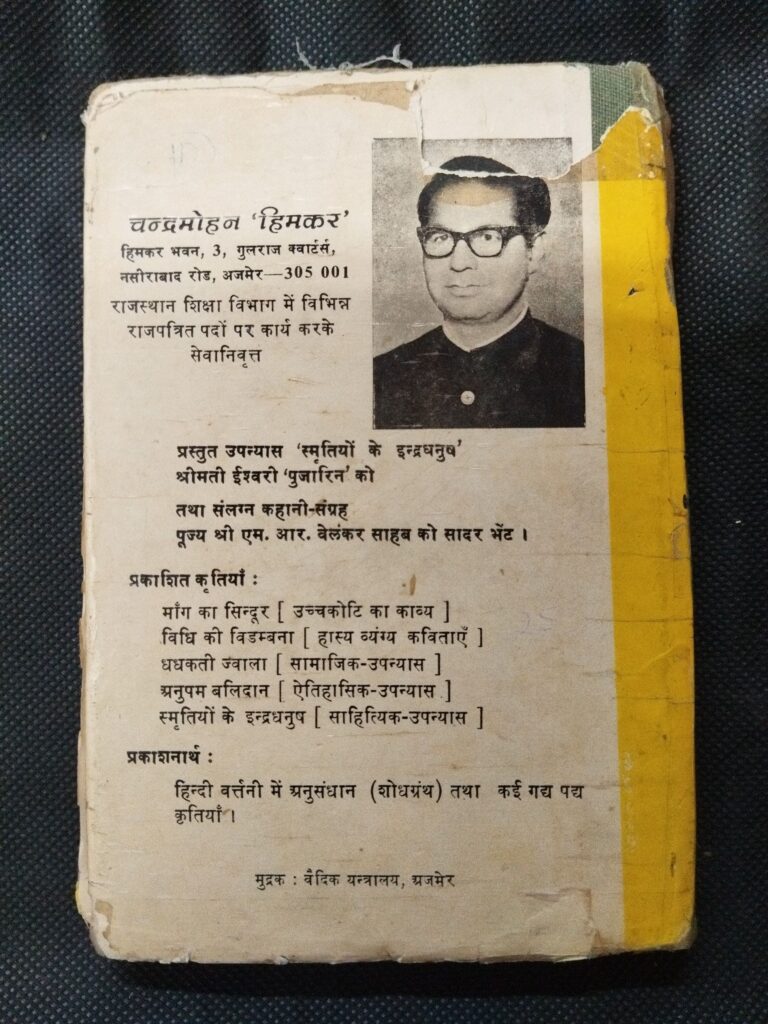 चन्द्रमोहन 'हिमकर'
हिमकर भवन, 3, गुलराज क्वार्टर्स,
नसीराबाद रोड, अजमेर—305 001
राजस्थान शिक्षा विभाग में विभिन्न
राजपत्रित पदों पर कार्य करके
सेवानिवृत्त
प्रस्तुत उपन्यास 'स्मृतियों के इन्द्रधनुष'
श्रीमती ईश्वरी 'पुजारिन' को
तथा संलग्न कहानी-संग्रह
पूज्य श्री एम. आर. वेलंकर साहब को सादर भेंट ।
प्रकाशित कृतियाँ :
माँग का सिन्दूर [ उच्चकोटि का काव्य ]
विधि की विडम्बना [ हास्य व्यंग्य कविताएँ ]
धधकती ज्वाला [ सामाजिक-उपन्यास ]
अनुषम बलिदान [ ऐतिहासिक-उपन्यास ]
स्मृतियों के इन्द्रधनुष [ साहित्यिक-उपन्यास ]
प्रकाशनार्थ :
हिन्दी वर्त्तनी में अनुसंधान (शोधग्रंथ) तथा कई गद्य पद्य
कृतियाँ ।
मुद्रक : वैदिक यन्त्रालय, अजमेर